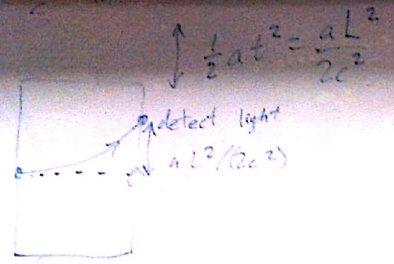 ½at² = aL²/2c²
detect light
aL²/(2c²)